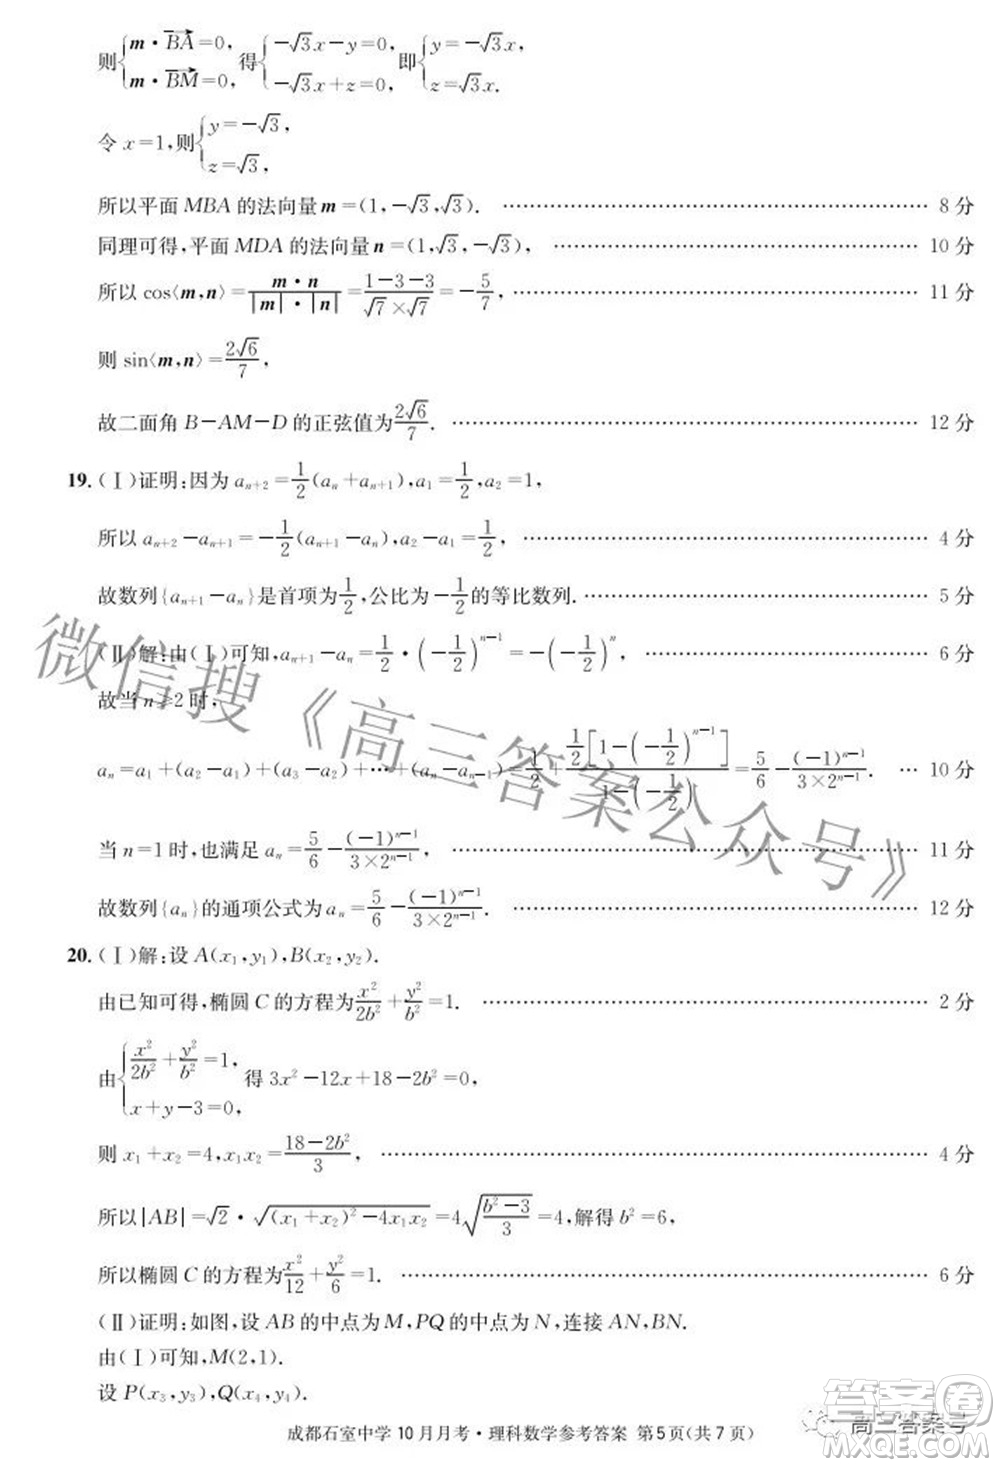 则{m·BA=0, m·BM=0, 得{−√3x−y=0, −√3x+z=0, 即{y=−√3x, z=√3x.
令 x=1,则{y=−√3, z=√3,
所以平面 MBA 的法向量 m=(1,−√3,√3). …… 8 分
同理可得,平面 MDA 的法向量 n=(1,√3,−√3), …… 10 分
所以 cos⟨m,n⟩=m·n/(|m|·|n|)=(1−3−3)/(√7×√7)=−5/7, …… 11 分
则 sin⟨m,n⟩=2√6/7,
故二面角 B−AM−D 的正弦值为2√6/7. …… 12 分
19.(Ⅰ)证明:因为 aₙ₊₂=1/2(aₙ+aₙ₊₁),a₁=1/2,a₂=1,
所以 aₙ₊₂−aₙ₊₁=−1/2(aₙ₊₁−aₙ),a₂−a₁=1/2, …… 4 分
故数列{aₙ₊₁−aₙ}是首项为1/2,公比为−1/2的等比数列. …… 5 分
(Ⅱ)解:由(Ⅰ)可知,aₙ₊₁−aₙ=1/2·(−1/2)ⁿ⁻¹=−(−1/2)ⁿ, …… 6 分
故当 n≥2 时,
aₙ=a₁+(a₂−a₁)+(a₃−a₂)+…+(aₙ−aₙ₋₁)=1/2+1/2[1−(−1/2)ⁿ⁻¹]/(1−(−1/2))=5/6−(−1)ⁿ⁻¹/(3×2ⁿ⁻¹). … 10 分
当 n=1 时,也满足 aₙ=5/6−(−1)ⁿ⁻¹/(3×2ⁿ⁻¹), …… 11 分
故数列{aₙ}的通项公式为 aₙ=5/6−(−1)ⁿ⁻¹/(3×2ⁿ⁻¹). …… 12 分
20.(Ⅰ)解:设 A(x₁,y₁),B(x₂,y₂).
由已知可得,椭圆 C 的方程为x²/2b²+y²/b²=1. …… 2 分
由{x²/2b²+y²/b²=1, x+y−3=0, 得 3x²−12x+18−2b²=0,
则 x₁+x₂=4,x₁x₂=(18−2b²)/3, …… 4 分
所以|AB|=√2·√((x₁+x₂)²−4x₁x₂)=4√((b²−3)/3)=4,解得 b²=6,
所以椭圆 C 的方程为x²/12+y²/6=1. …… 6 分
(Ⅱ)证明:如图,设 AB 的中点为 M,PQ 的中点为 N,连接 AN,BN.
由(Ⅰ)可知,M(2,1).
设 P(x₃,y₃),Q(x₄,y₄).
成都石室中学 10 月月考·理科数学参考答案 第5页(共7页)
微信搜《高三答案公众号》
高三答案号
答案圈
MXQE.COM